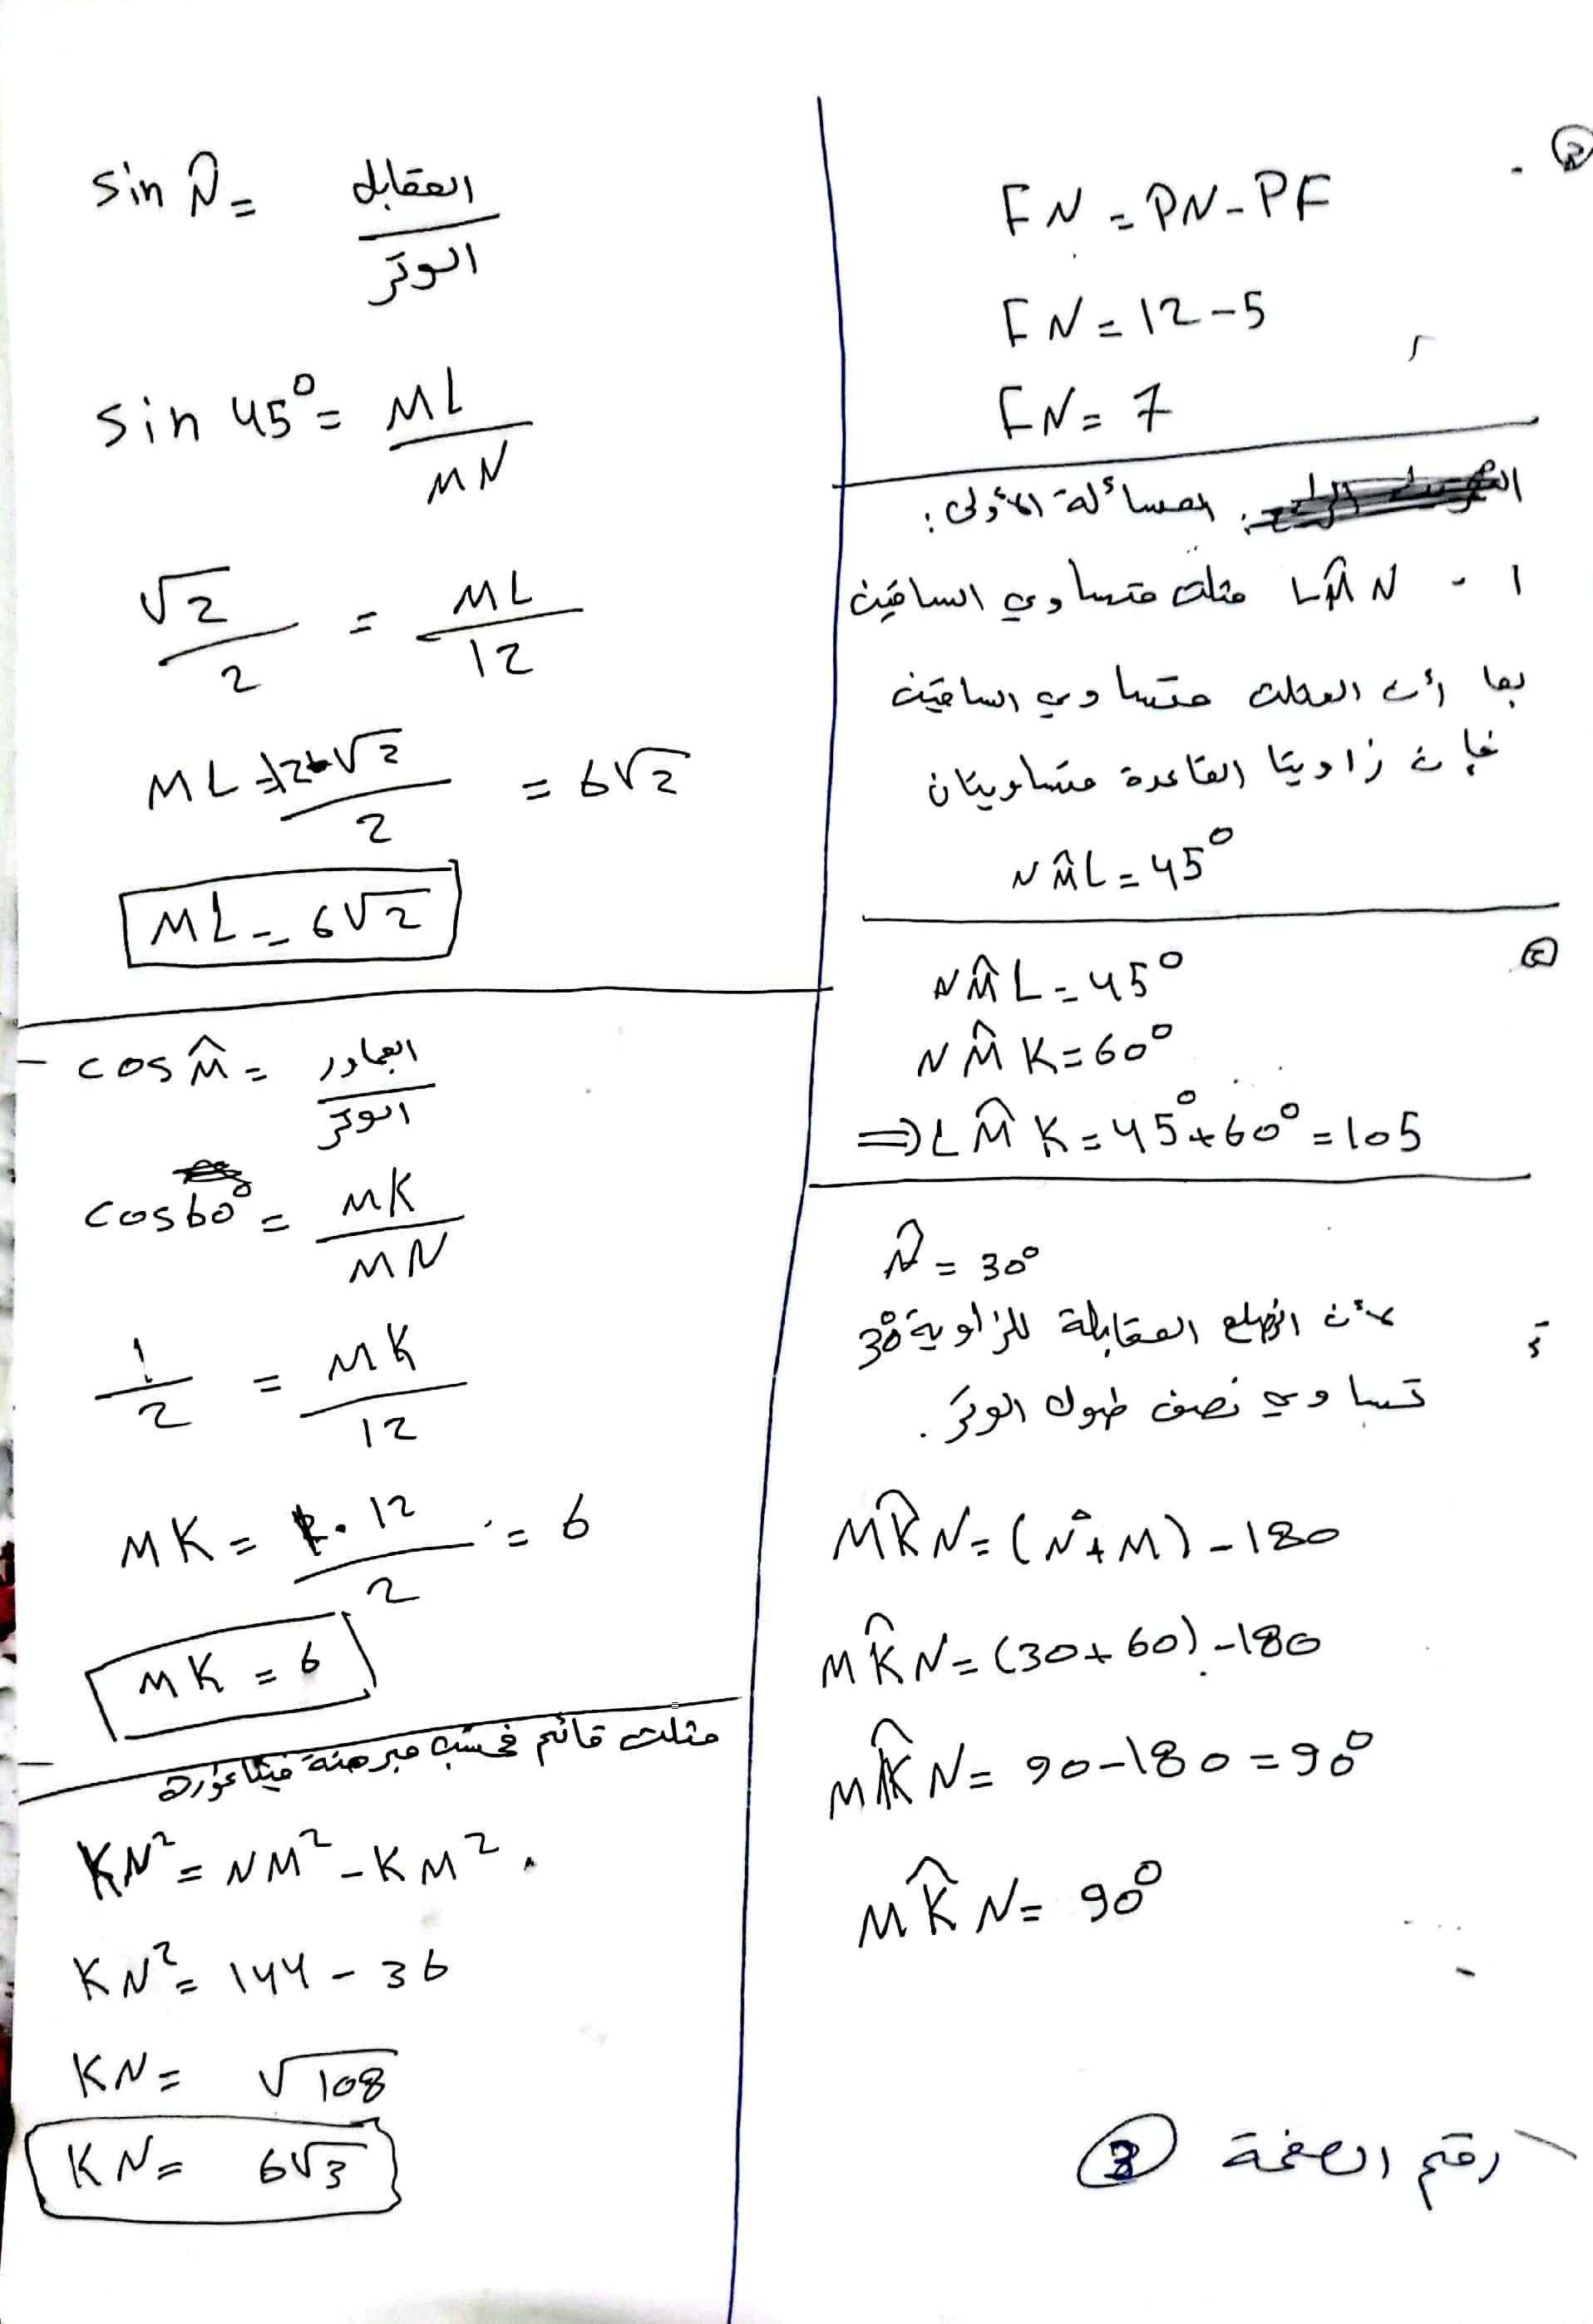 FN = PN - PF
FN = 12 - 5
FN = 7
المسألة الأولى:
1 - LM̂N مثلث متساوي الساقين
بما أن المثلث متساوي الساقين
فإن زاويتا القاعدة متساويتان
NM̂L = 45°
NM̂L = 45°
NM̂K = 60°
⇒ LM̂K = 45° + 60° = 105
N̂ = 30°
لأن الضلع المقابلة للزاوية 30°
تساوي نصف طول الوتر.
MK̂N = (N̂ + M) - 180
MK̂N = (30 + 60) - 180
MK̂N = 90 - 180 = 90°
MK̂N = 90°
رقم الصفحة 3
sin N̂ = المقابل / الوتر
sin 45° = ML / MN
√2 / 2 = ML / 12
ML = 12√2 / 2 = 6√2
ML = 6√2
- cos M̂ = المجاور / الوتر
cos 60° = MK / MN
1 / 2 = MK / 12
MK = 1 . 12 / 2 = 6
MK = 6
- مثلث قائم فحسب مبرهنة فيثاغورث
KN² = NM² - KM²
KN² = 144 - 36
KN = √108
KN = 6√3